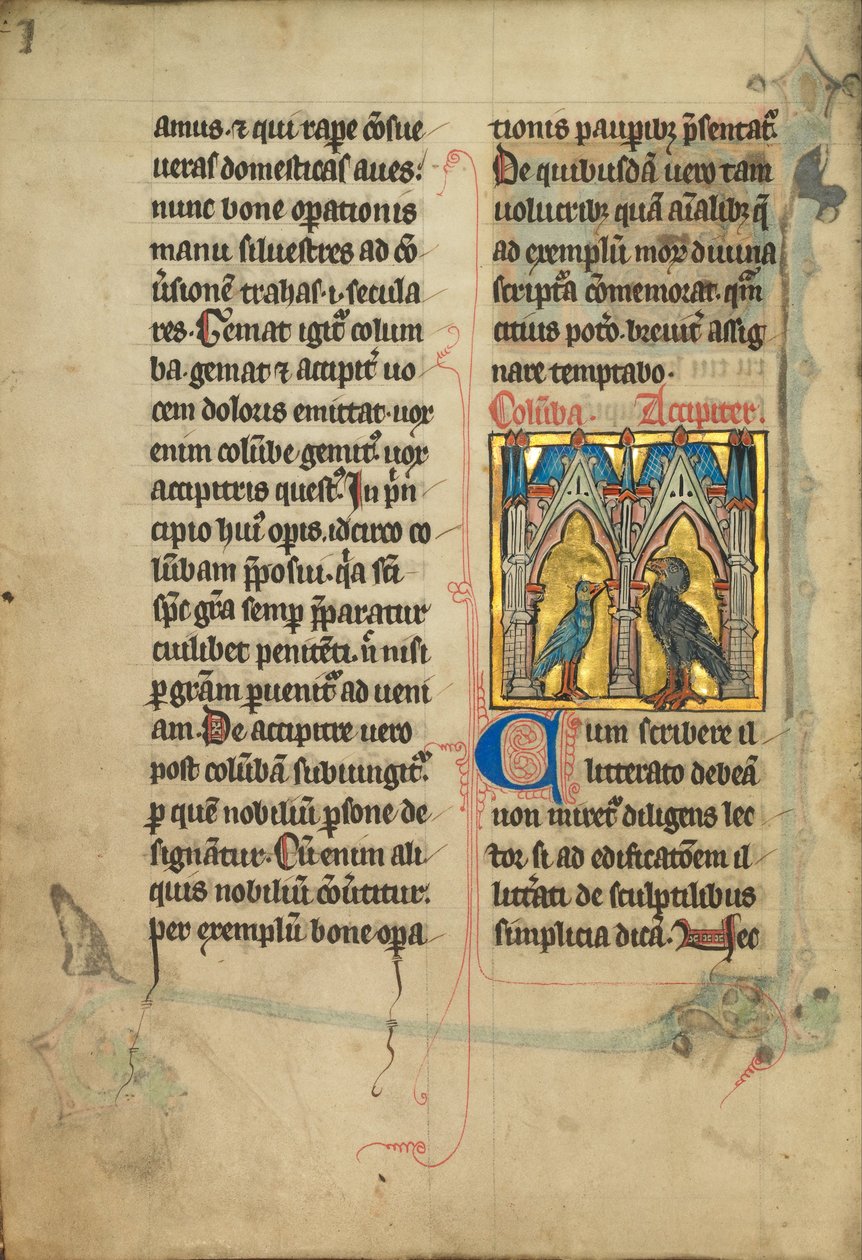 amus.⁊ qui rape c̄osue
ueras domesticas aues:
nunc bone op̱ationis
manu siluestres ad cō
u̓sionē trahas.i.secula
res. Gemat igit᷑ colum
ba.gemat ⁊ accipit̓ uo
cem doloris emittat.uox
enim colūbe gemit᷒.uox
accipitris quest᷒. In p̓n
cipio hui᷒ op̱is.idcirco co
lūbam p̄posui.q̓a sc̄i
sp̄c gr̄a semp̱ p̄paratur
cuilibet penitēti.n̓ nisi
p̱ grām p̱uenit᷑ ad ueni
am. De accipitre uero
post colūbā subiungit᷑.
p̱ quē nobiliū p̱sone de
signāntur. Cū enim ali
quis nobiliū cōu̓titur.
per exemplū bone opa
tionis paup̱ibꝫ p̄sentat᷑.
De quibusdā uero tam
uolucribꝫ quā aīalibꝫ q̄
ad exemplū moꝝ diuina
scriptᷓa cōmemorat.qm̄
citius pot̓o.breuit̓ assig
nare temptabo.
Colūba. Accipiter.
Cum scribere il
litterato debeā
non miret᷑ diligens lec
tor si ad edificatōem il
litt̓ati de sculptilibus
simplicia dicā. Nec